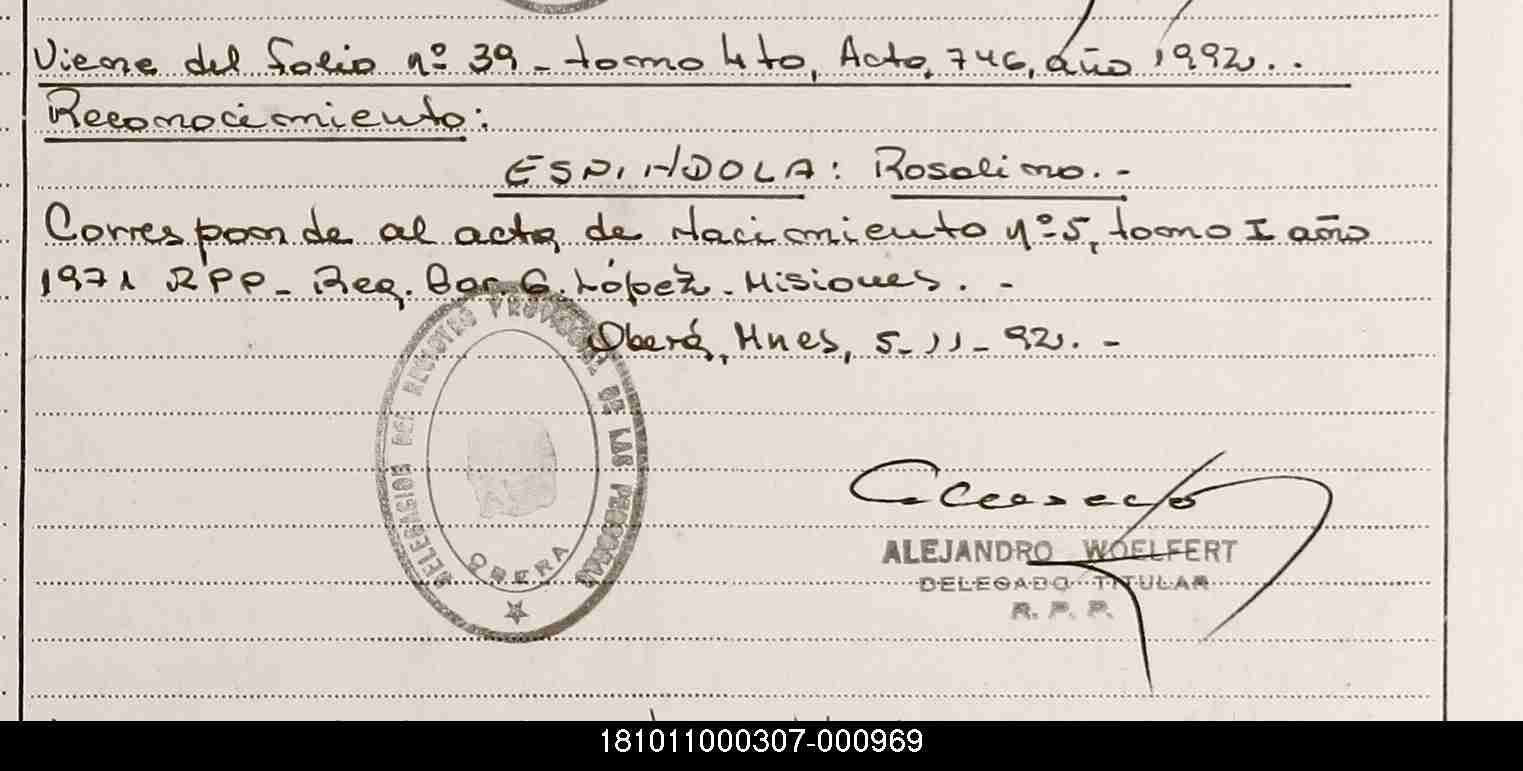 Viene del folio nº 39 - tomo 4to, Acta, 746, año 1992. .
Reconocimiento:
ESPINDOLA: Rosalino. -
Corresponde al acta de Nacimiento nº 5, tomo I año
1971 RPP - Reg. Bor G. López - Misiones. -
Oberá, Mnes, 5 - 11 - 92. -
DELEGACION DEL REGISTRO PROVINCIAL DE LAS PERSONAS
OBERA
ALEJANDRO WOELFERT
DELEGADO TITULAR
R. P. P.
181011000307-000969